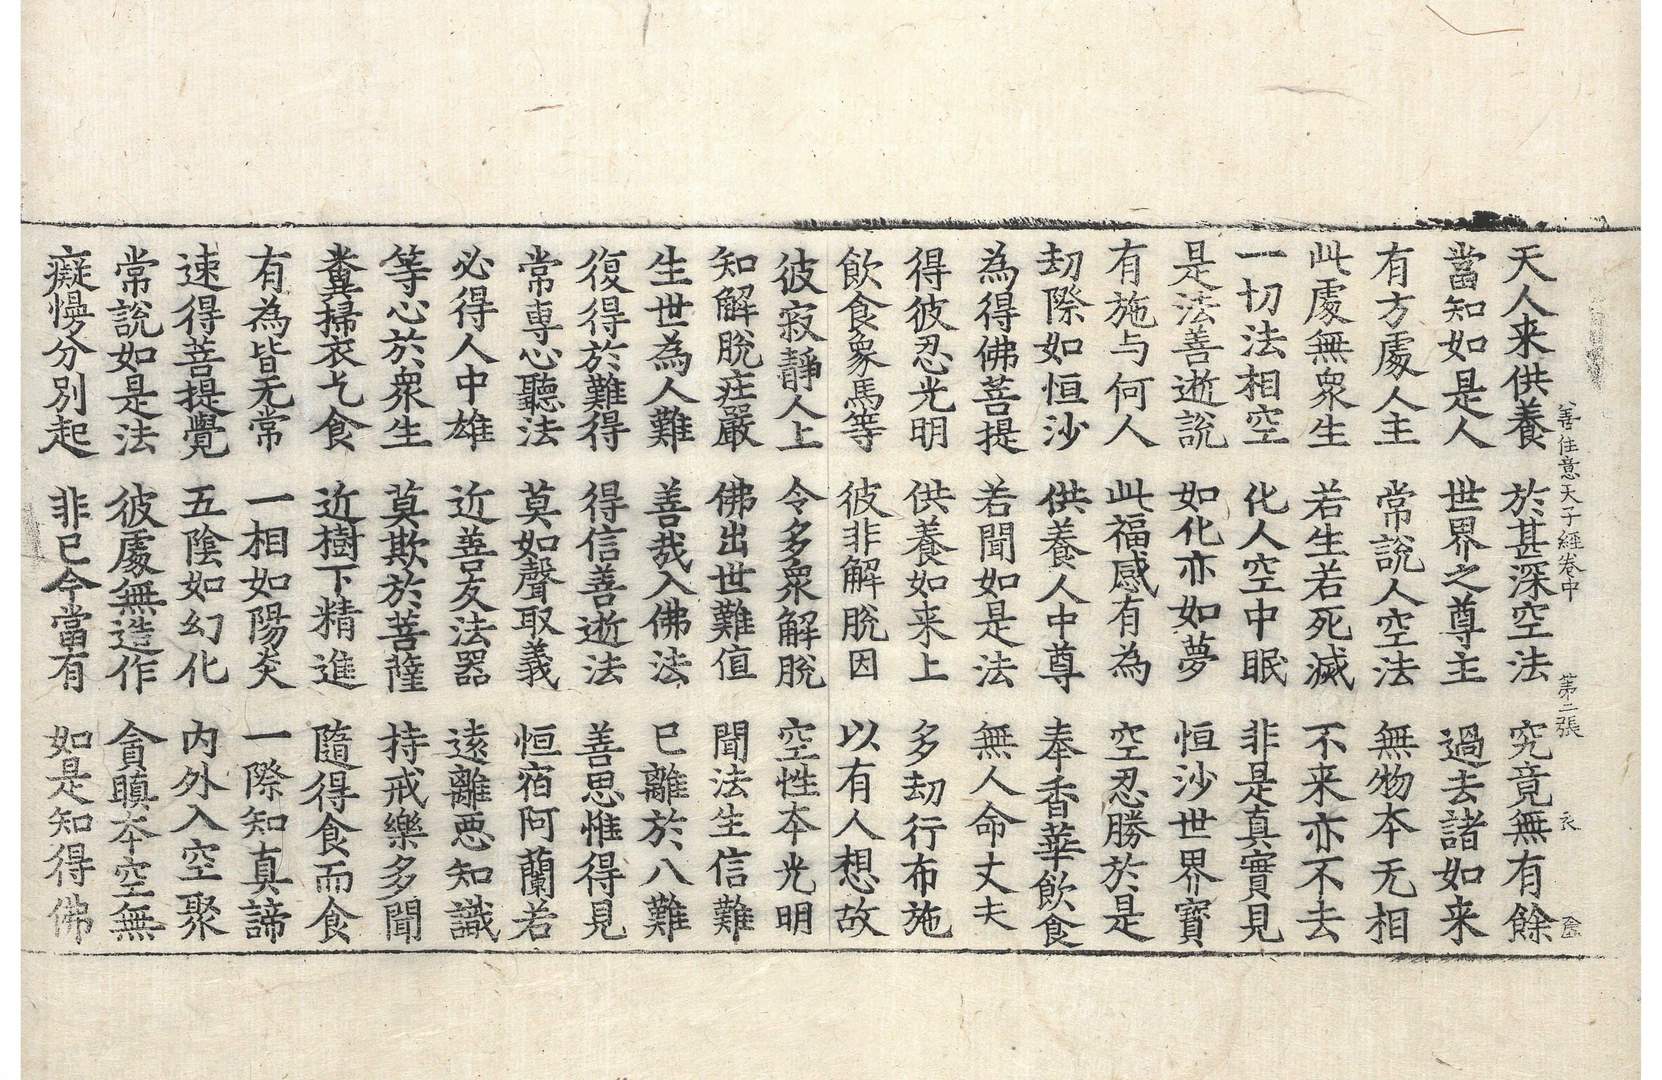 善住意天子經卷中 第二張 衣
天人来供養 於甚深空法 究竟無有餘
當知如是人 世界之尊主 過去諸如来
有方處人主 常說人空法 無物本无相
此處無衆生 若生若死滅 不来亦不去
一切法相空 化人空中眠 非是真實見
是法善逝說 如化亦如夢 恒沙世界寶
有施与何人 此福感有為 空忍勝於是
劫際如恒沙 供養人中尊 奉香華飲食
為得佛菩提 若聞如是法 無人命丈夫
得彼忍光明 供養如来上 多劫行布施
飲食象馬等 彼非解脫因 以有人想故
彼寂靜人上 令多衆解脫 空性本光明
知解脫莊嚴 佛出世難值 聞法生信難
生世為人難 善哉入佛法 已離於八難
復得於難得 得信善逝法 善思惟得見
常專心聽法 莫如聲取義 恒宿阿蘭若
必得人中雄 近善友法器 遠離惡知識
等心於衆生 莫欺於菩薩 持戒樂多聞
糞掃衣乞食 近樹下精進 隨得食而食
有為皆无常 一相如陽炎 一際知真諦
速得菩提覺 五陰如幻化 内外入空聚
常說如是法 彼處無造作 貪瞋本空無
癡慢分別起 非已今當有 如是知得佛